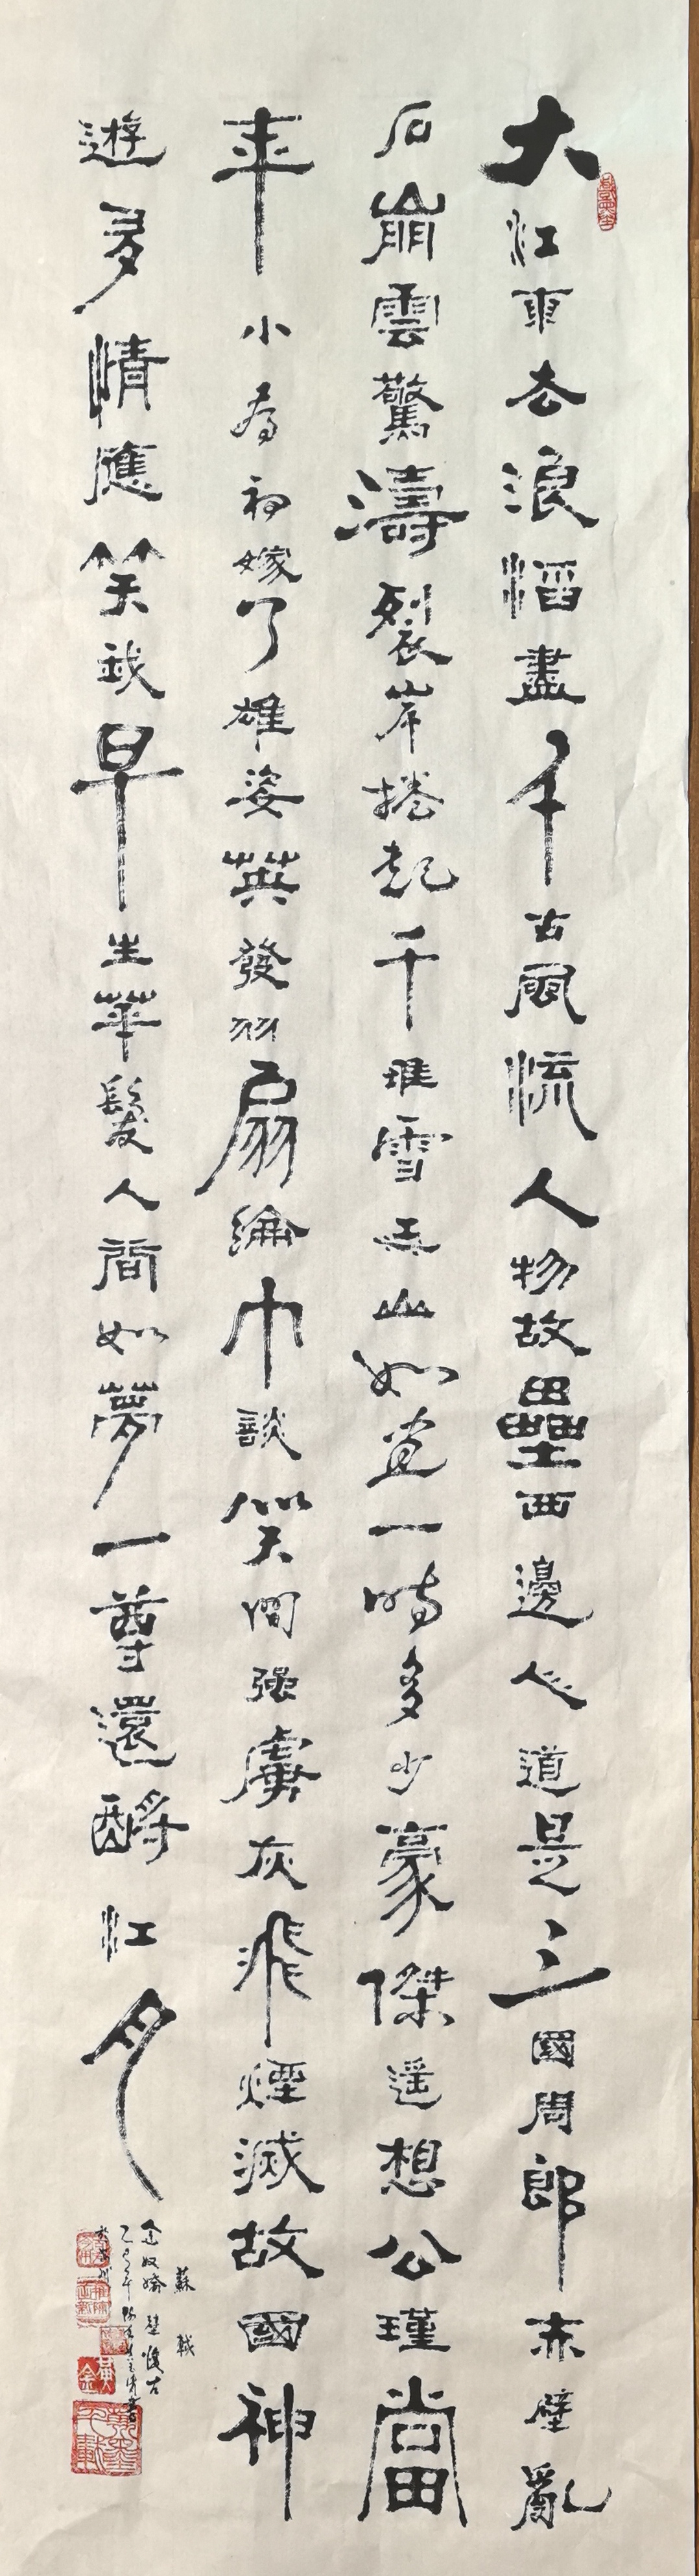 大江東去浪滔盡千古風流人物故壘西邊人道是三國周郎赤壁亂
石崩雲驚濤裂岸捲起千堆雪江山如畫一時多少豪傑遥想公瑾當
年小喬初嫁了雄姿英發羽扇綸巾談笑間强虜灰飛煙滅故國神
遊多情應笑我早生華髮人間如夢一尊還酹江月
蘇軾
念奴嬌 壁懷古